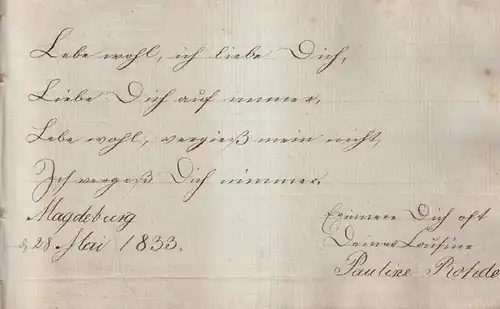 Lebe wohl, ich liebe Dich,
Liebe Dich auf immer,
Lebe wohl, vergieß mein nicht,
Ich vergeß Dich nimmer.
Magdeburg
d. 28 Mai 1833.
Erinnere Dich oft
Deiner Cousine
Pauline Rohde